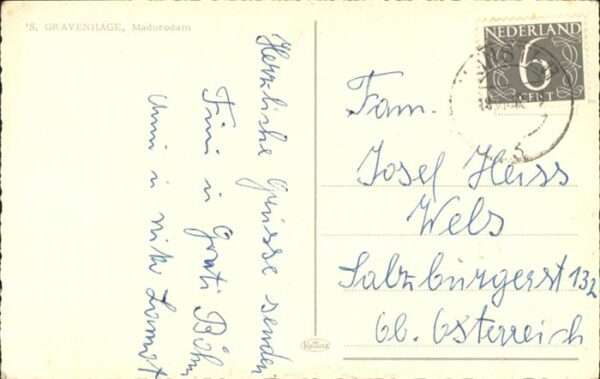 'S. GRAVENHAGE, Madurodam
Herzliche Grüsse senden
Fini u
Böhm
u
NEDERLAND
6
CENT
Fam.
Josef Heiss
Wels
Salzburgerst 132
Ob. Österreich